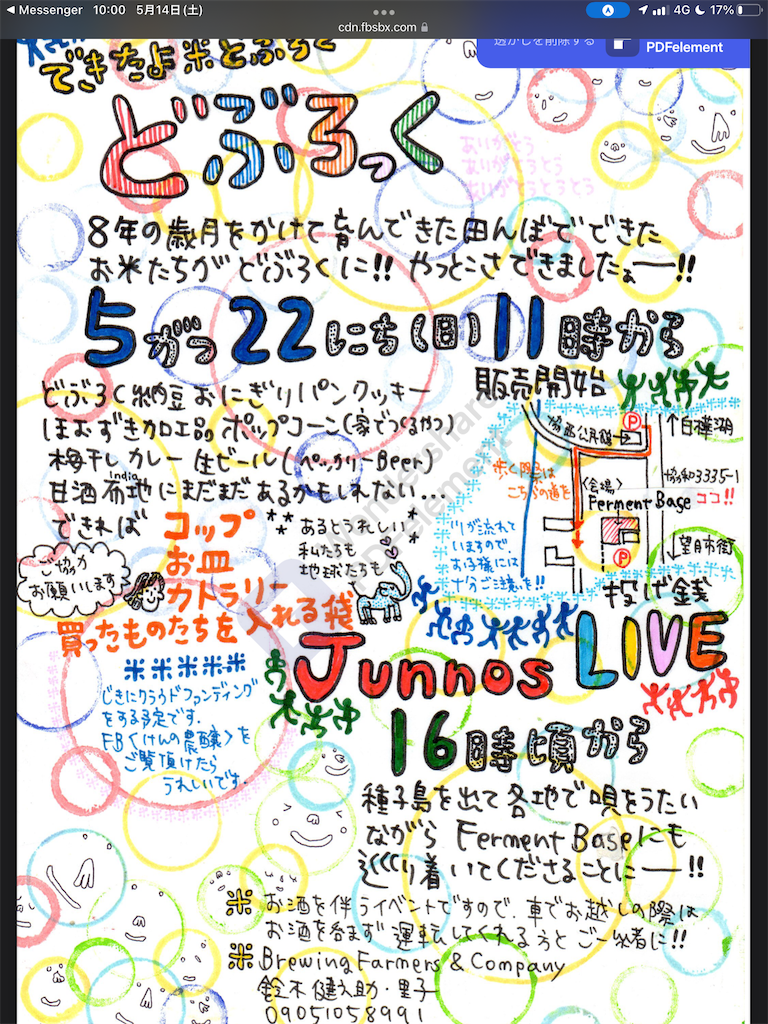 Messenger 10:00 5月14日(土)
4G 17%
cdn.fbsbx.com
透かしを削除する
PDFelement
できたよ米とぶちを
どぶろっく
ありがとう
ありがとうとう
ありがとうとうとう
8年の歳月をかけて育んできた田んぼでできた
お米たちがどぶろくに!! やっとこさできましたぁー!!
5がつ22にち(日)11時から
販売開始
どぶろく 納豆 おにぎり パン クッキー
ほおずき加工品 ポップコーン(家でつくるやつ)
梅干し カレー 生ビール(ペッカリーBeer)
India
甘酒 布地 にまだまだあるかもしれない...
できれば
コップ
お皿
カトラリー
買ったものたちを入れる袋
あるとうれしい
私たちも
地球たちも
ご協力
お願いします
協和公民館
P
↑白樺湖
歩く際は
こちらの道を
〈会場〉
Ferment Base
協和3335-1
ココ!!
川が流れて
いますので
お子様には
十分ご注意を!!
P
↓望月市街
投げ銭
Junnos LIVE
16時頃から
米米米米米
じきにクラウドファンディング
をする予定です.
FB〈けんの農醸〉を
ご覧頂けたら
うれしいです.
種子島を出て各地で唄をうたい
ながら Ferment Baseにも
巡り着いてくださることにー!!
米 お酒を伴うイベントですので、車でお越しの際は
お酒を呑まず運転してくれる方とご一緒に!!
米 Brewing Farmers & Company
鈴木健之助・里子
09051058991
Wondershare
PDFelement